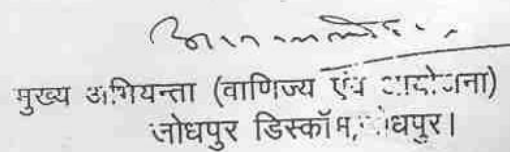 मुख्य अभियन्ता (वाणिज्य एंव आयोजना)
जोधपुर डिस्कॉम, जोधपुर।